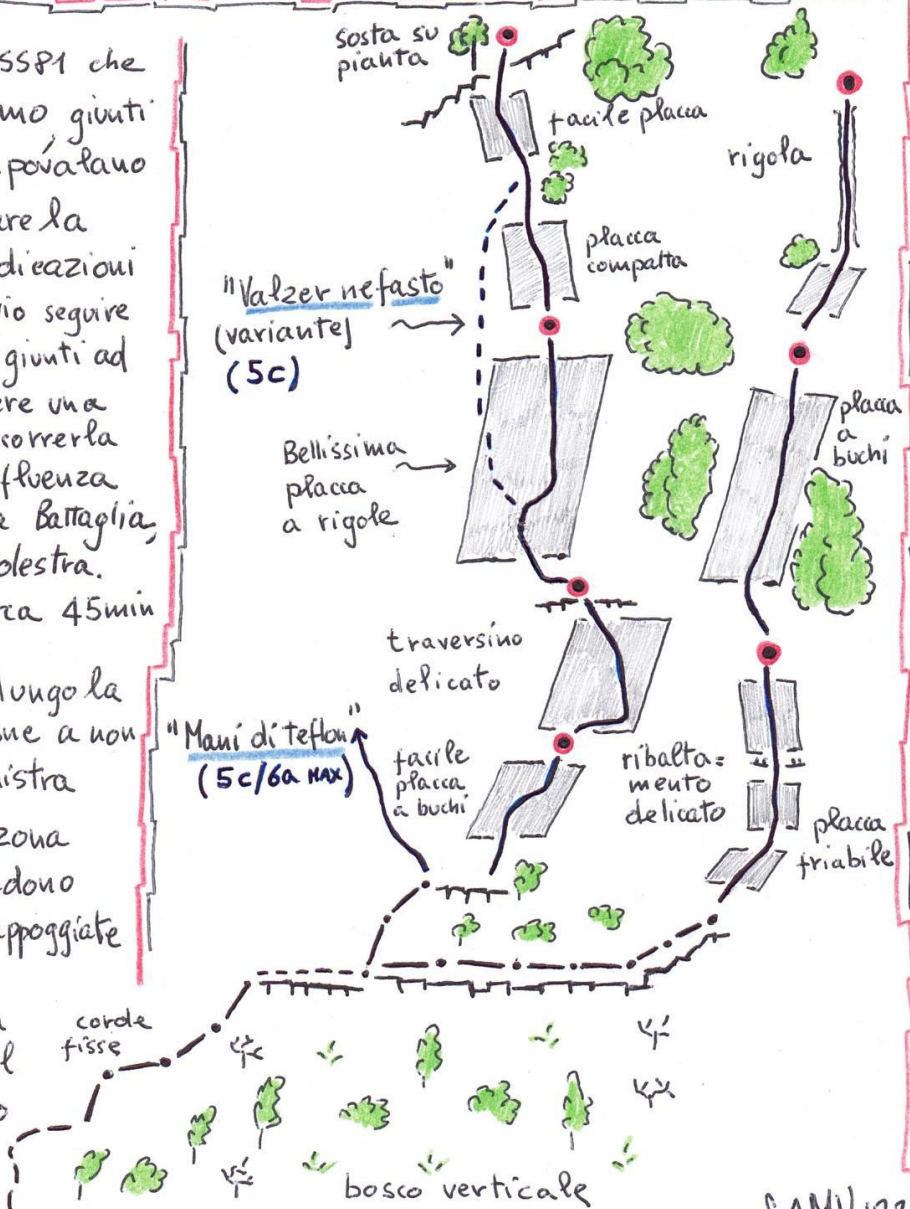 SS81 che
giunti
povalano
are la
dicazioni
seguire
giunti ad
ere una
correrla
fluenza
Battaglia,
olestra.
ca 45min
lungo la
me a non
nistra
zona
dono
ppoggiate
corde
fisse
sosta su
pianta
facile placca
placca
compatta
"Valzer nefasto"
(variante)
(5c)
Bellissima
placca
a rigole
traversino
delicato
"Mani di teflon"
(5c/6a MAX)
facile
placca
a buchi
rigola
placca
a
buchi
ribalta=
mento
delicato
placca
friabile
bosco verticale